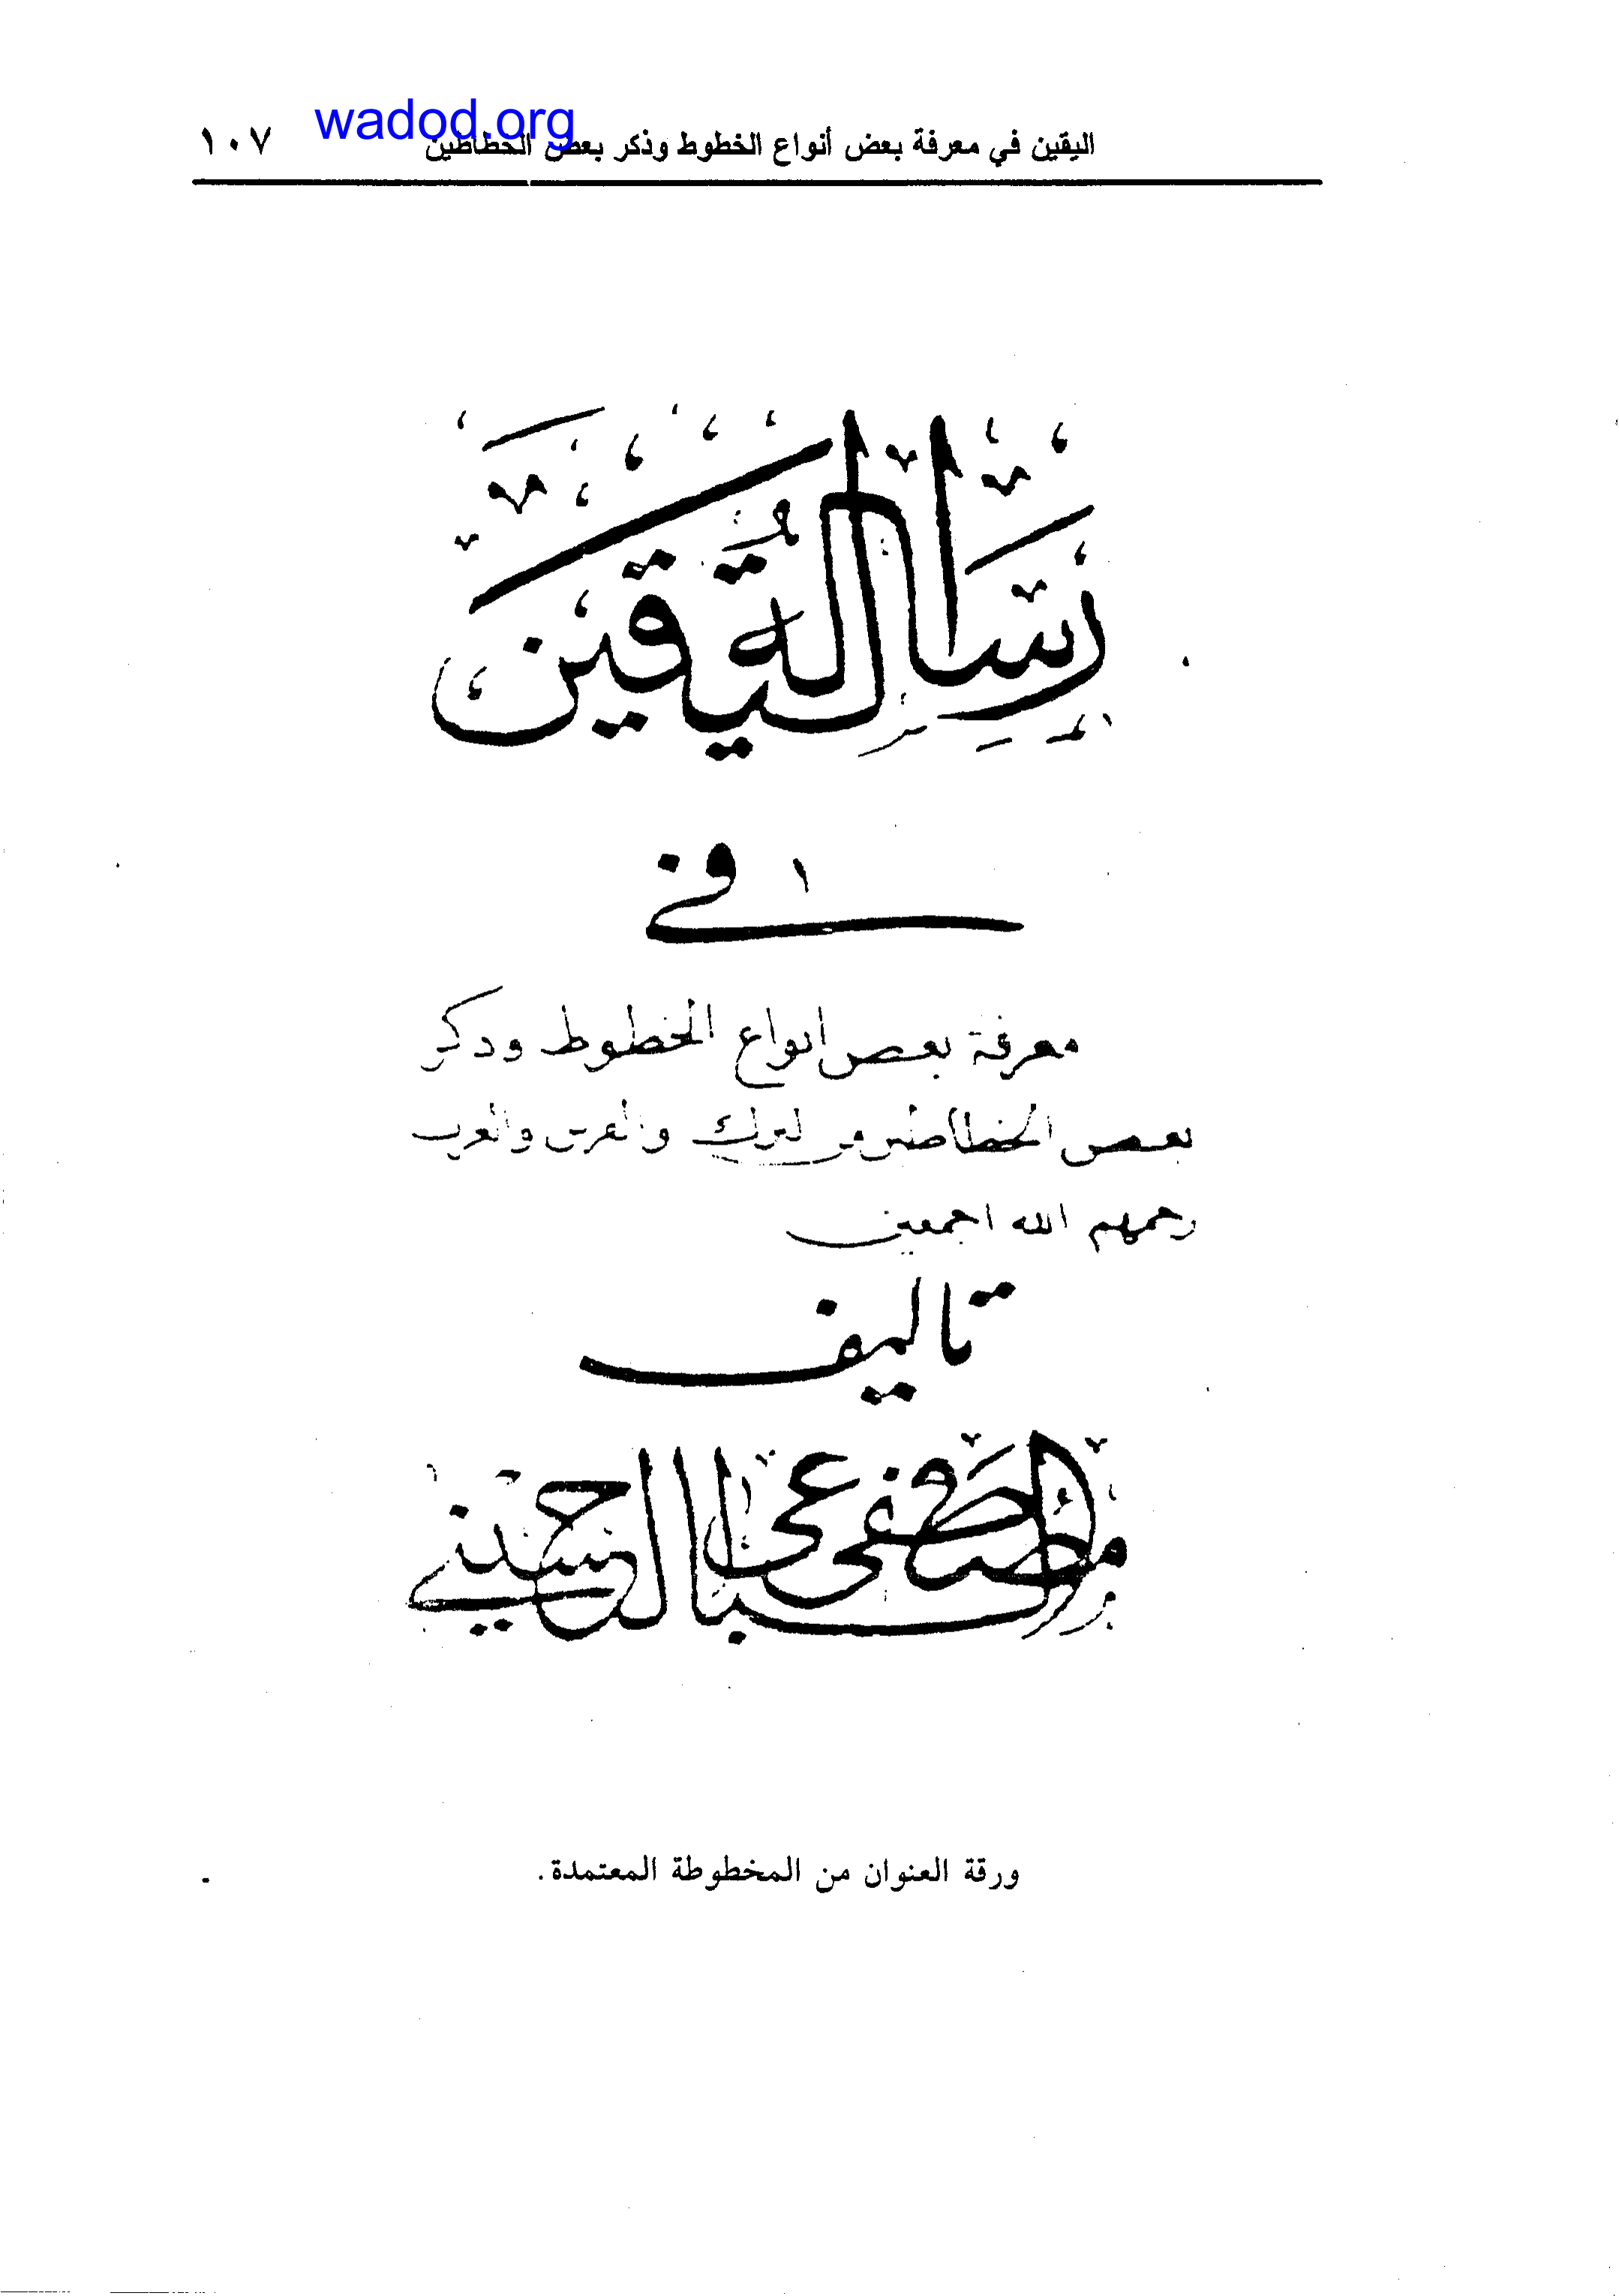 wadod.org
اليقين في معرفة بعض أنواع الخطوط وذكر بعض الخطاطين ١٠٧
رسالة اليقين
في
معرفة بعض انواع الخطوط وذكر
بعض الخطاطين من الترك والفرس والعرب
رحمهم الله اجمعين
تاليف
مصطفى السباعي الحسيني
ورقة العنوان من المخطوطة المعتمدة.